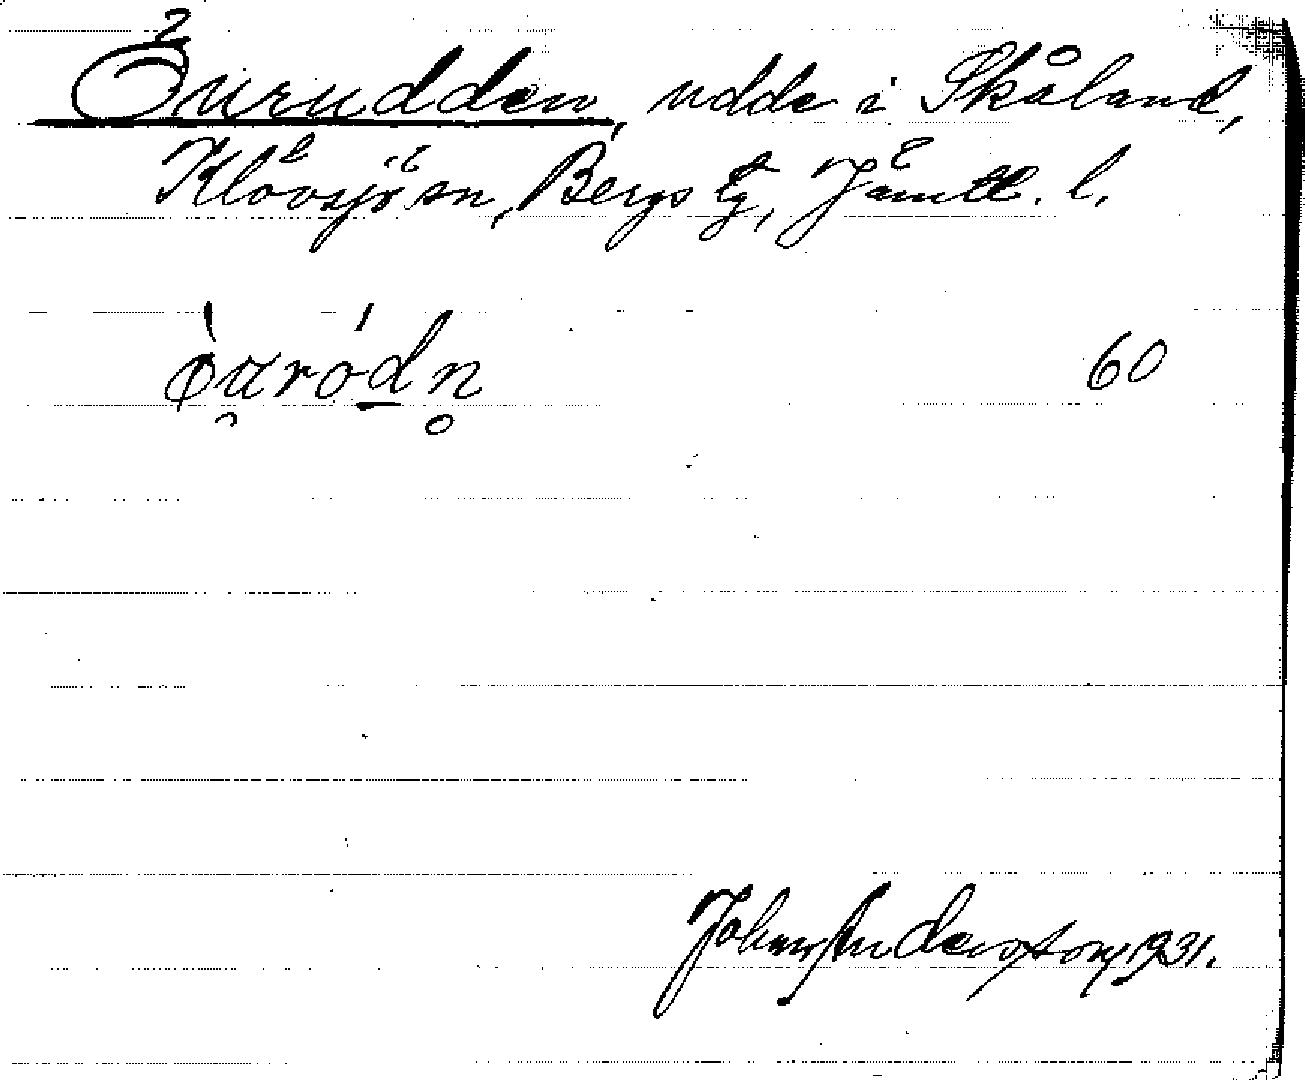 Öurudden, udde i Skåland,
Klövsjö sn, Bergs tg, Jämtl. l.
60
Johan Anderson, 1931.